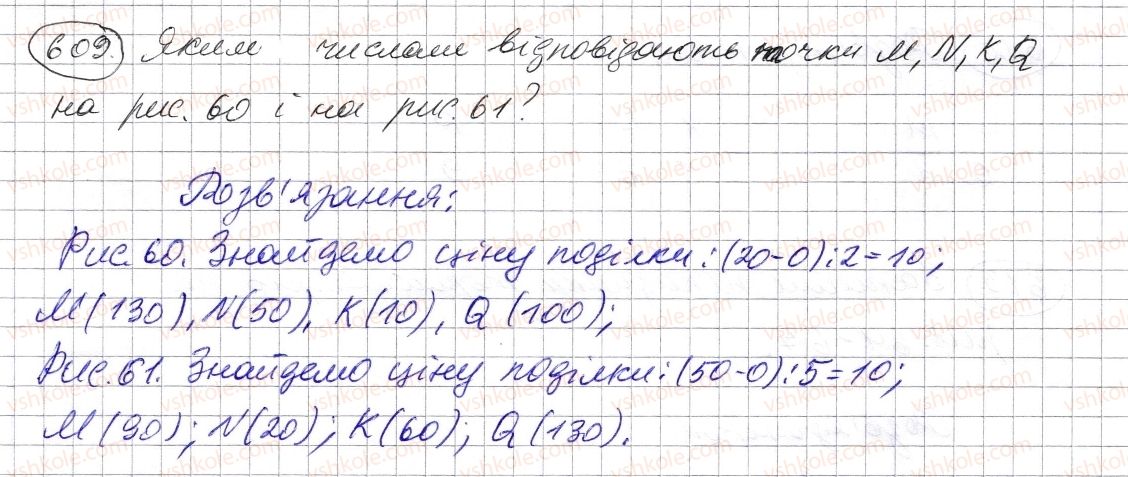 609. Яким числам відповідають точки M, N, K, Q
на рис. 60 і на рис. 61?
Розв'язання:
Рис. 60. Знайдемо ціну поділки: (20-0):2=10;
M(130), N(50), K(10), Q(100);
Рис. 61. Знайдемо ціну поділки: (50-0):5=10;
M(90); N(20); K(60); Q(130).